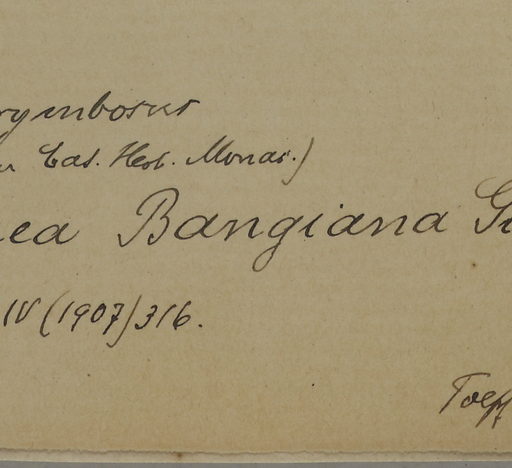 rymbosus
Cat. Herb. Monac.)
ea Bangiana G
IV (1907) 316.
Toepf